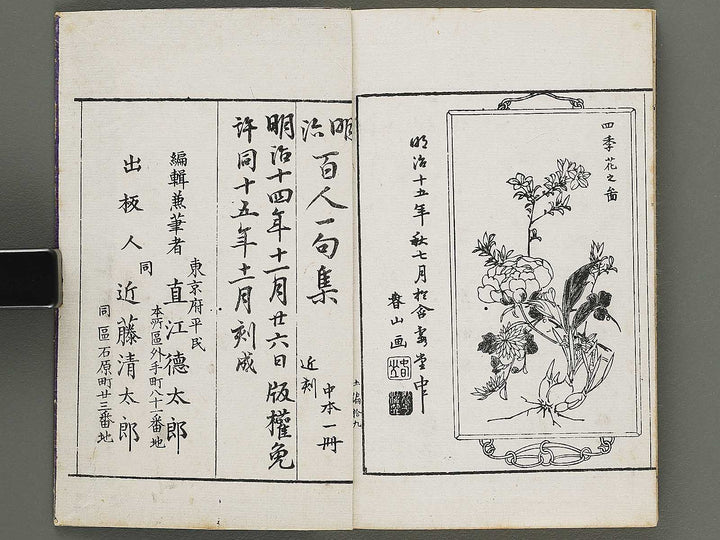 四季花之圖
明治十五年秋七月於含春堂中
春山画
明治百人一句集
近刻
中本一冊
明治十四年十一月廿六日版權免
許同十五年十二月刻成
東京府平民
編輯兼筆者 直江德太郎
本所區外手町八十一番地
同
出板人 近藤清太郎
同區石原町廿三番地